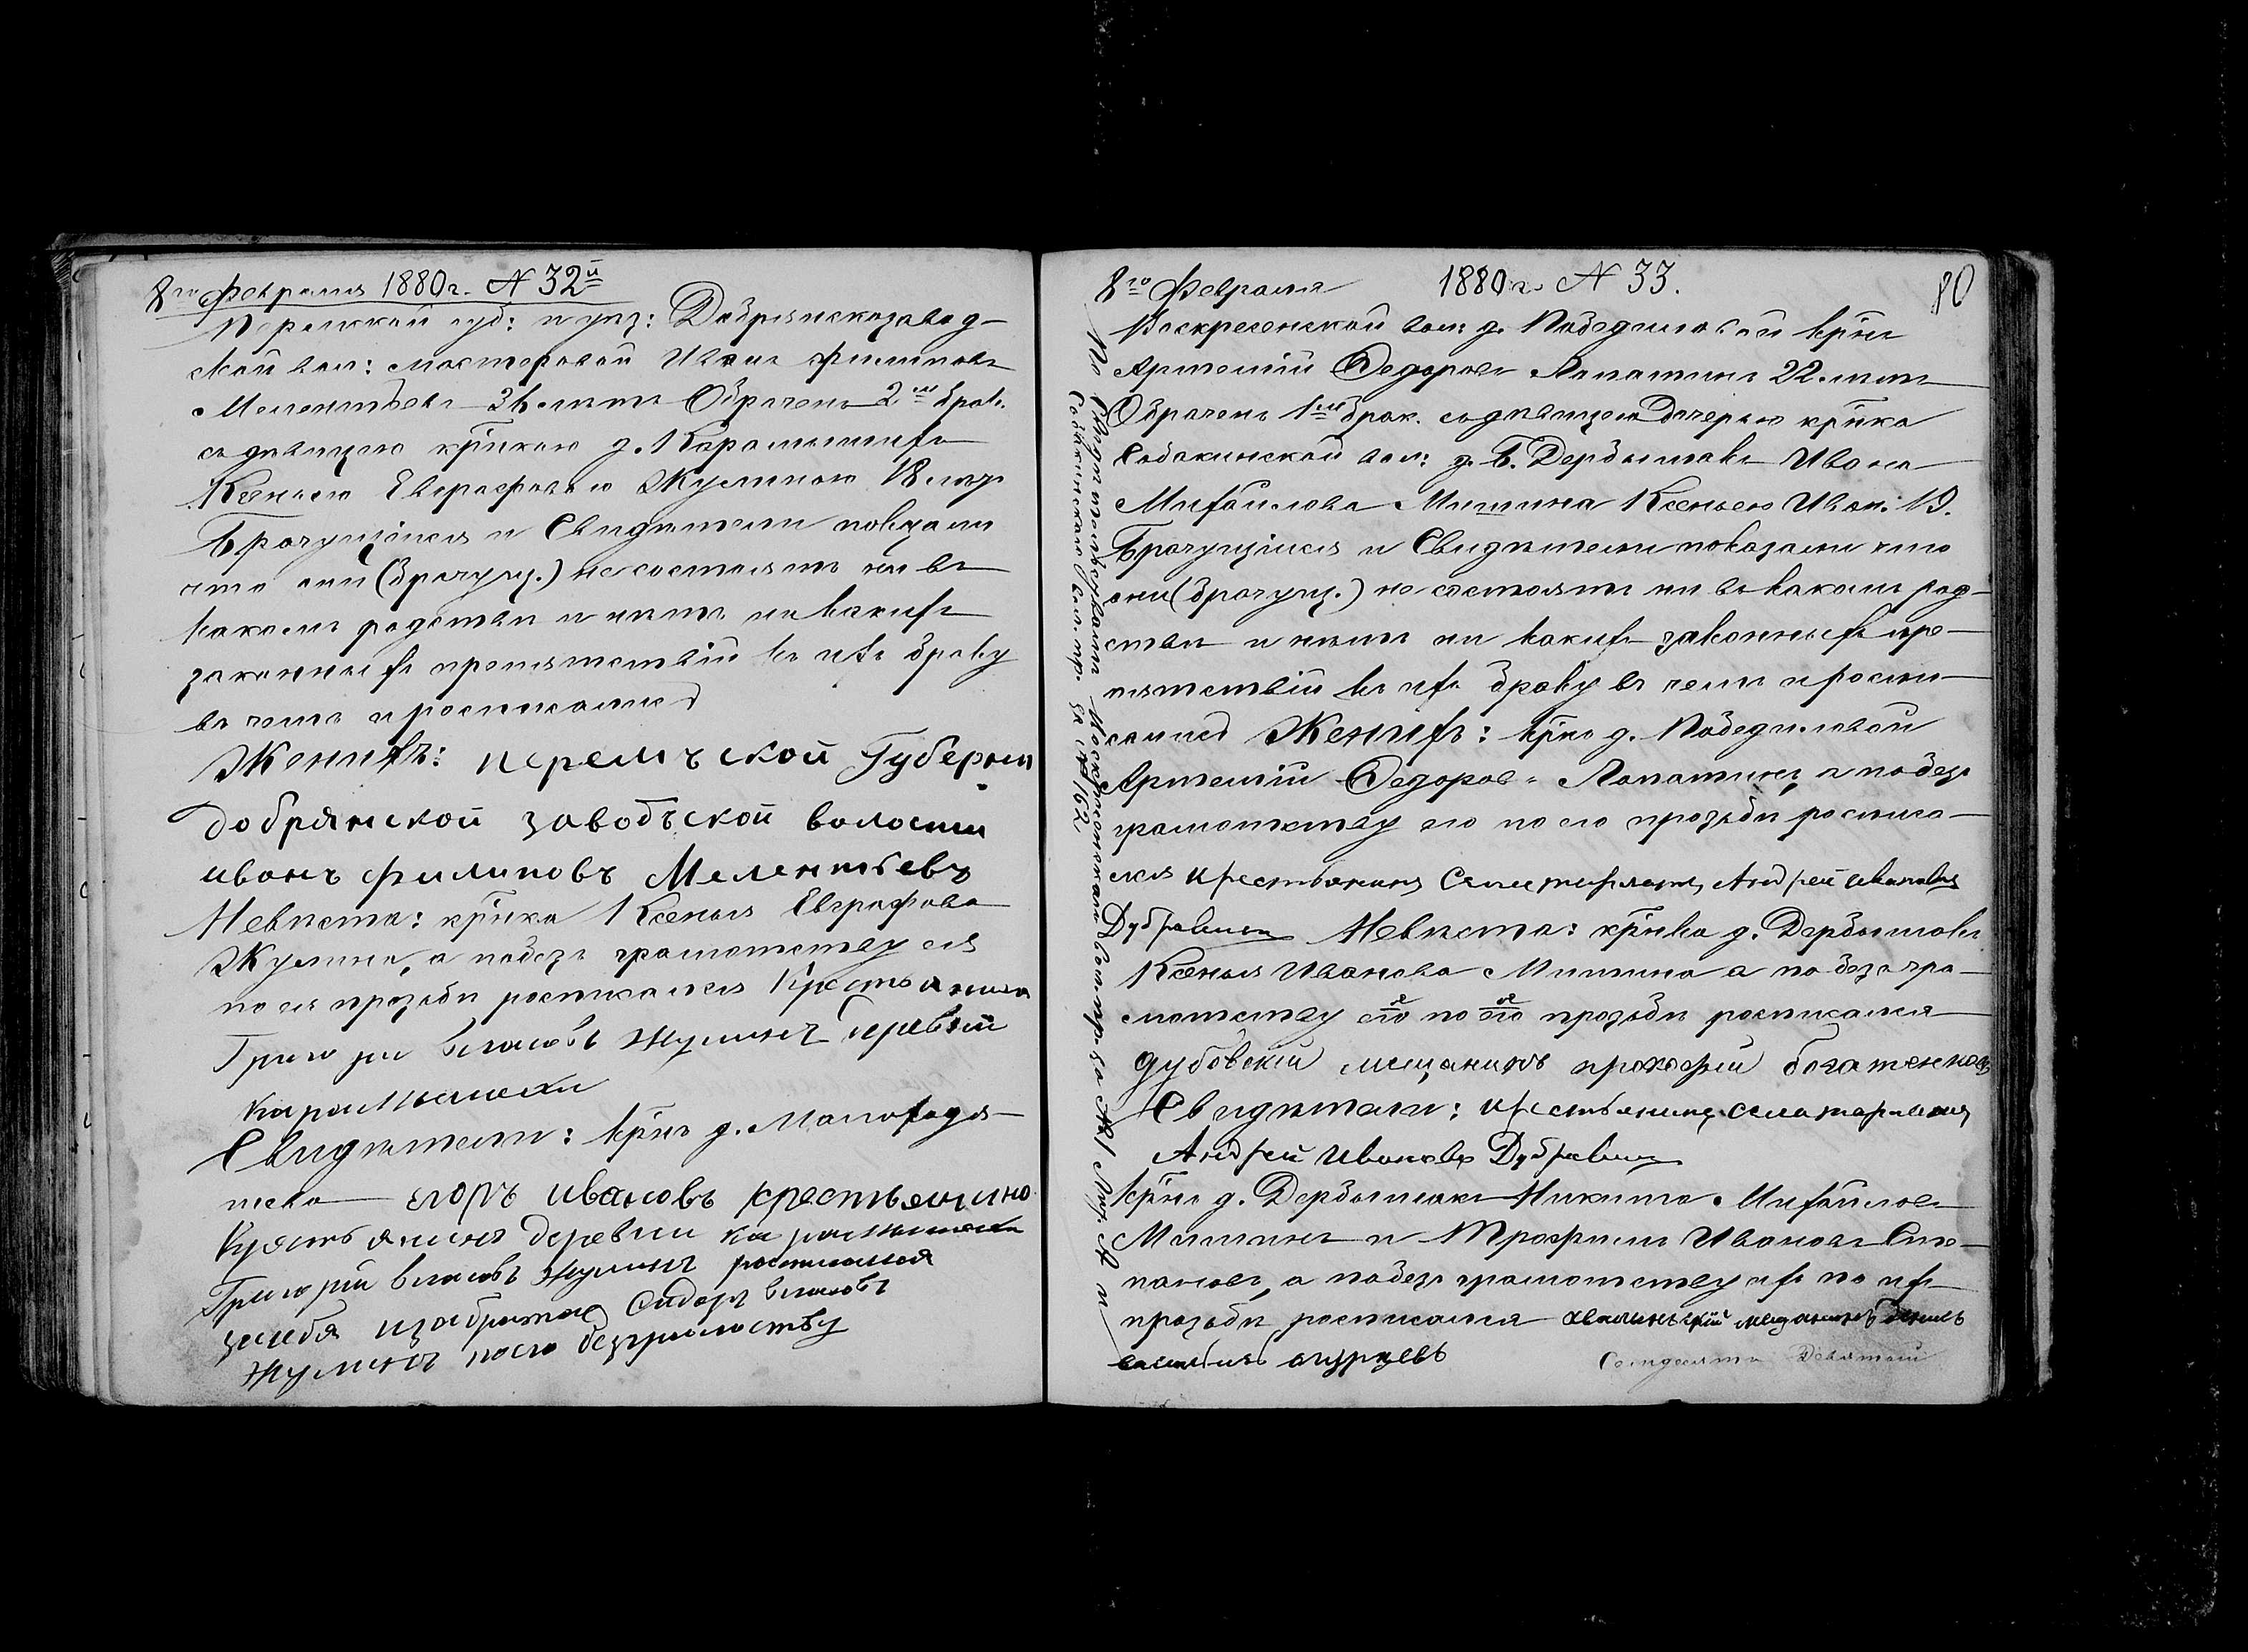 8го Февраля 1880 г. № 32й
Пермской губ: и уѣз: Добрянскозавод-
ской вол: мастеровой Иванъ Филиповъ
Мелентьевъ 36 лѣтъ Обрачен 2мъ брак.
съ дѣвицею кр̃нкою д.
Ксеньею Евграфовою Жулиною 18 лѣтъ
Брачущіися и Свидѣтели показали
что они (брачущ.) не состоятъ ни въ
какомъ родствѣ и нѣтъ ни какихъ
законныхъ препятствій къ ихъ браку
въ чемъ и росписались
Женихъ: перемъской Губерни
добрянской заводъской волости
иванъ филиповъ Мелентьевъ
Невѣста: кр̃нка Ксенья Евграфова
Жулина, а по безъ грамотству ея
по ея прозьбѣ росписался Крестьянинъ
Григори власовъ Жулинъ деревни
Свидѣтели: кр̃нъ д.
егоръ ивановъ
Крестьянинъ деревни
Григорій власовъ Жулинъ росписался
засебя изабрата Сидоръ власовъ
Жулинъ поего безграмоству
8го Февраля 1880 г. № 33.
80
Воскресенской вол: д. Победиловой кр̃нъ
Артемій Федоровъ Лопатинъ 22 лѣтъ
Обрачен 1мъ брак. съ дѣвицею Дочерью кр̃нка
Собакинской вол: д. Б. Дербышовъ Ивана
Михайлова Мишина Ксеньею Иван: 19.
Брачущіися и Свидѣтели показали что
они (брачущ.) не состоятъ ни въ какомъ род-
ствѣ и нѣтъ ни какихъ законныхъ пре-
пятствій къ ихъ браку въ чемъ и роспи-
сались Женихъ: кр̃нъ д. Победиловой
Артемій Федоровъ Лопатинъ, а по безъ
грамотству его по его прозьбѣ росписа-
лся крестьянинъ Андрей Ивановъ
Дубравинъ Невѣста: кр̃нка д. Дербышовъ
Ксенья Иванова Мишина а по безъ гра-
мотству ея по ея прозьбѣ росписался
дубовскій мещанинъ прокофій
Свидѣтели: крестьянинъ
Андрей Ивановъ Дубравинъ
кр̃нъ д. Дербышовъ Никита Михайловъ
Мишинъ и Трофимъ Ивановъ Сте-
пановъ, а по безъ грамотству ихъ по ихъ
прозьбѣ росписался хвалынскій мещанинъ
Семдесятъ Девятой
По Свидѣтельствамъ Воскресенскаго Вол. пр. за №
Собакинскаго Вол. пр. за № 162